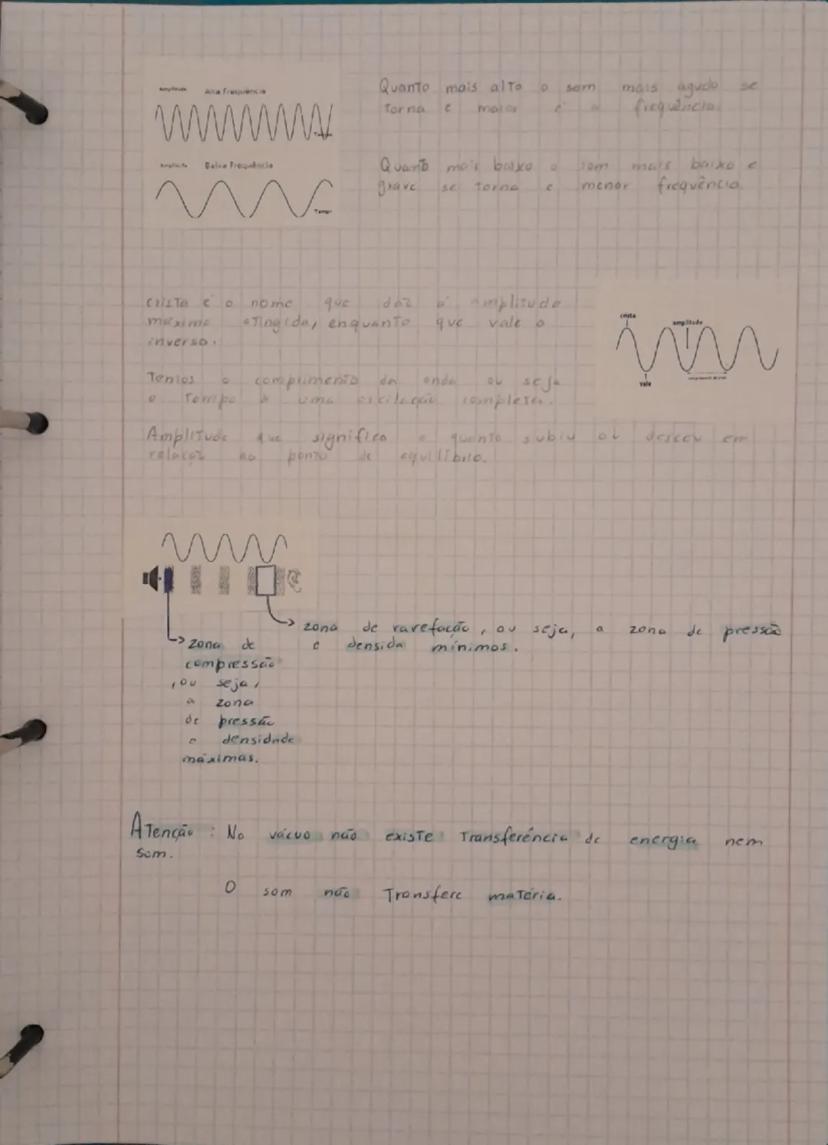 Amplitude Alta Frequência
Quanto mais alto o som mais agudo se
torna e maior é a frequência.
Tempo
Amplitude Baixa Frequência
Quanto mais baixo o som mais baixo e
grave se torna e menor frequência.
Tempo
crista é o nome que daz à amplitude
máxima atingida, enquanto que vale o
inverso.
crista
amplitude
vale
Temos o comprimento da onda ou seja
o tempo de uma oscilação completa.
Amplitude que significa o quanto subiu ou desceu em
relação ao ponto de equilíbrio.
zona de rarefação, ou seja, a zona de pressão
e densida mínimos.
zona de
compressão
, ou seja,
a zona
de pressão
e densidade
máximas.
Atenção: No vácuo não existe Transferência de energia nem
som.
O som não Transfere matéria.